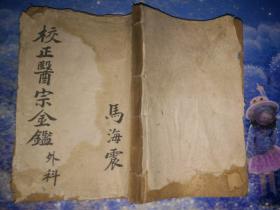 校正醫宗金鑑外科
馬海震